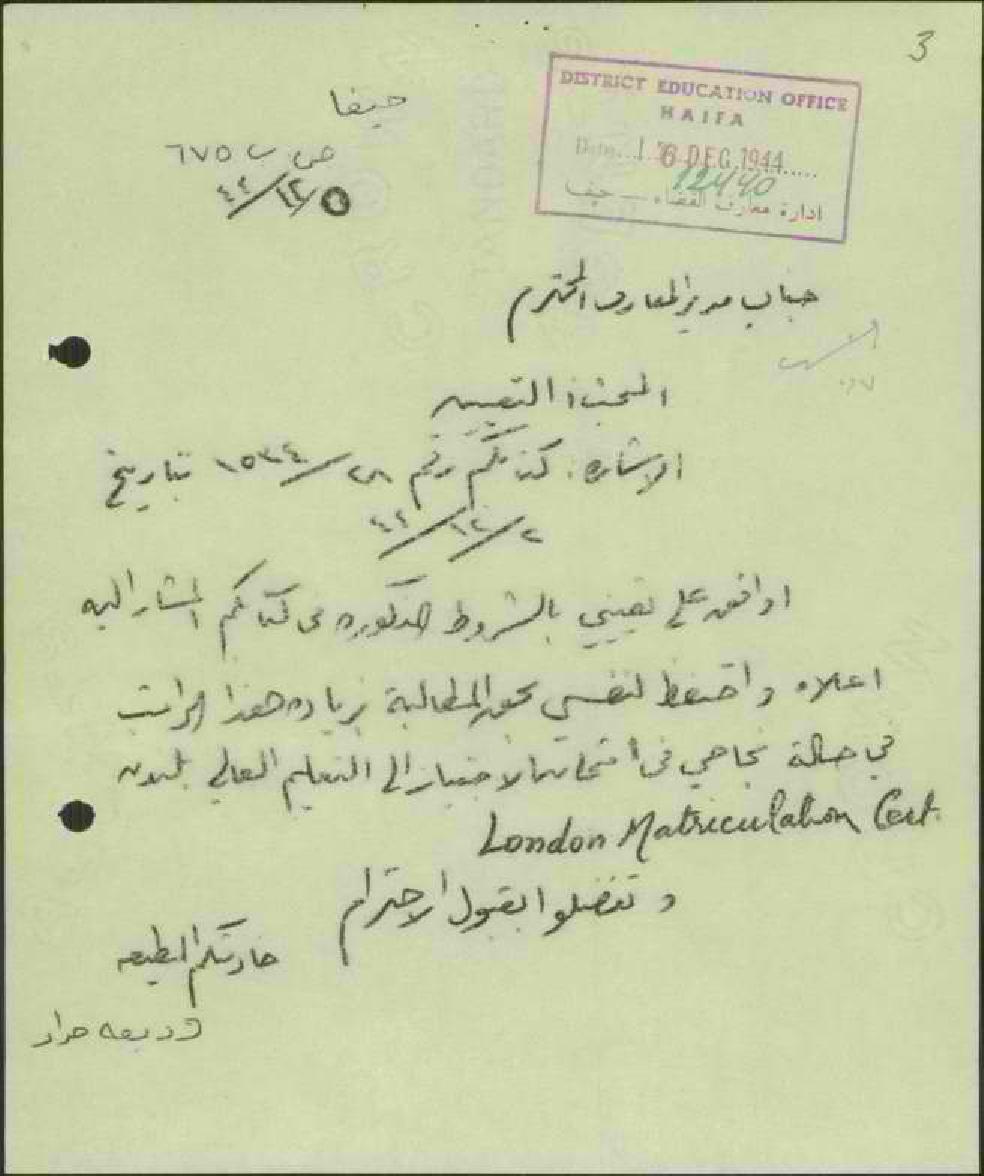 3
DISTRICT EDUCATION OFFICE
HAIFA
Date 16 DEC 1944
12440
ادارة معارف القضاء — حيفا
حيفا
ص ب ٦٧٥
٥/١٢/٤٤
جناب مدير المعارف المحترم
البحث: التعيين
الاشارة: كتابكم رقم ٢٨/١٥٣٤ بتاريخ
٢/١٢/٤٤
اوافق على تعييني بالشروط المذكوره في كتابكم المشار اليه
اعلاه و احتفظ لنفسي بحق المطالبة بزياده هذا الراتب
في حالة نجاحي في امتحان الاجتياز الى التعليم العالي بلندن
London Matriculation Cert.
و تفضلوا بقبول الاحترام
خادمتكم المطيعه
وديعه حداد